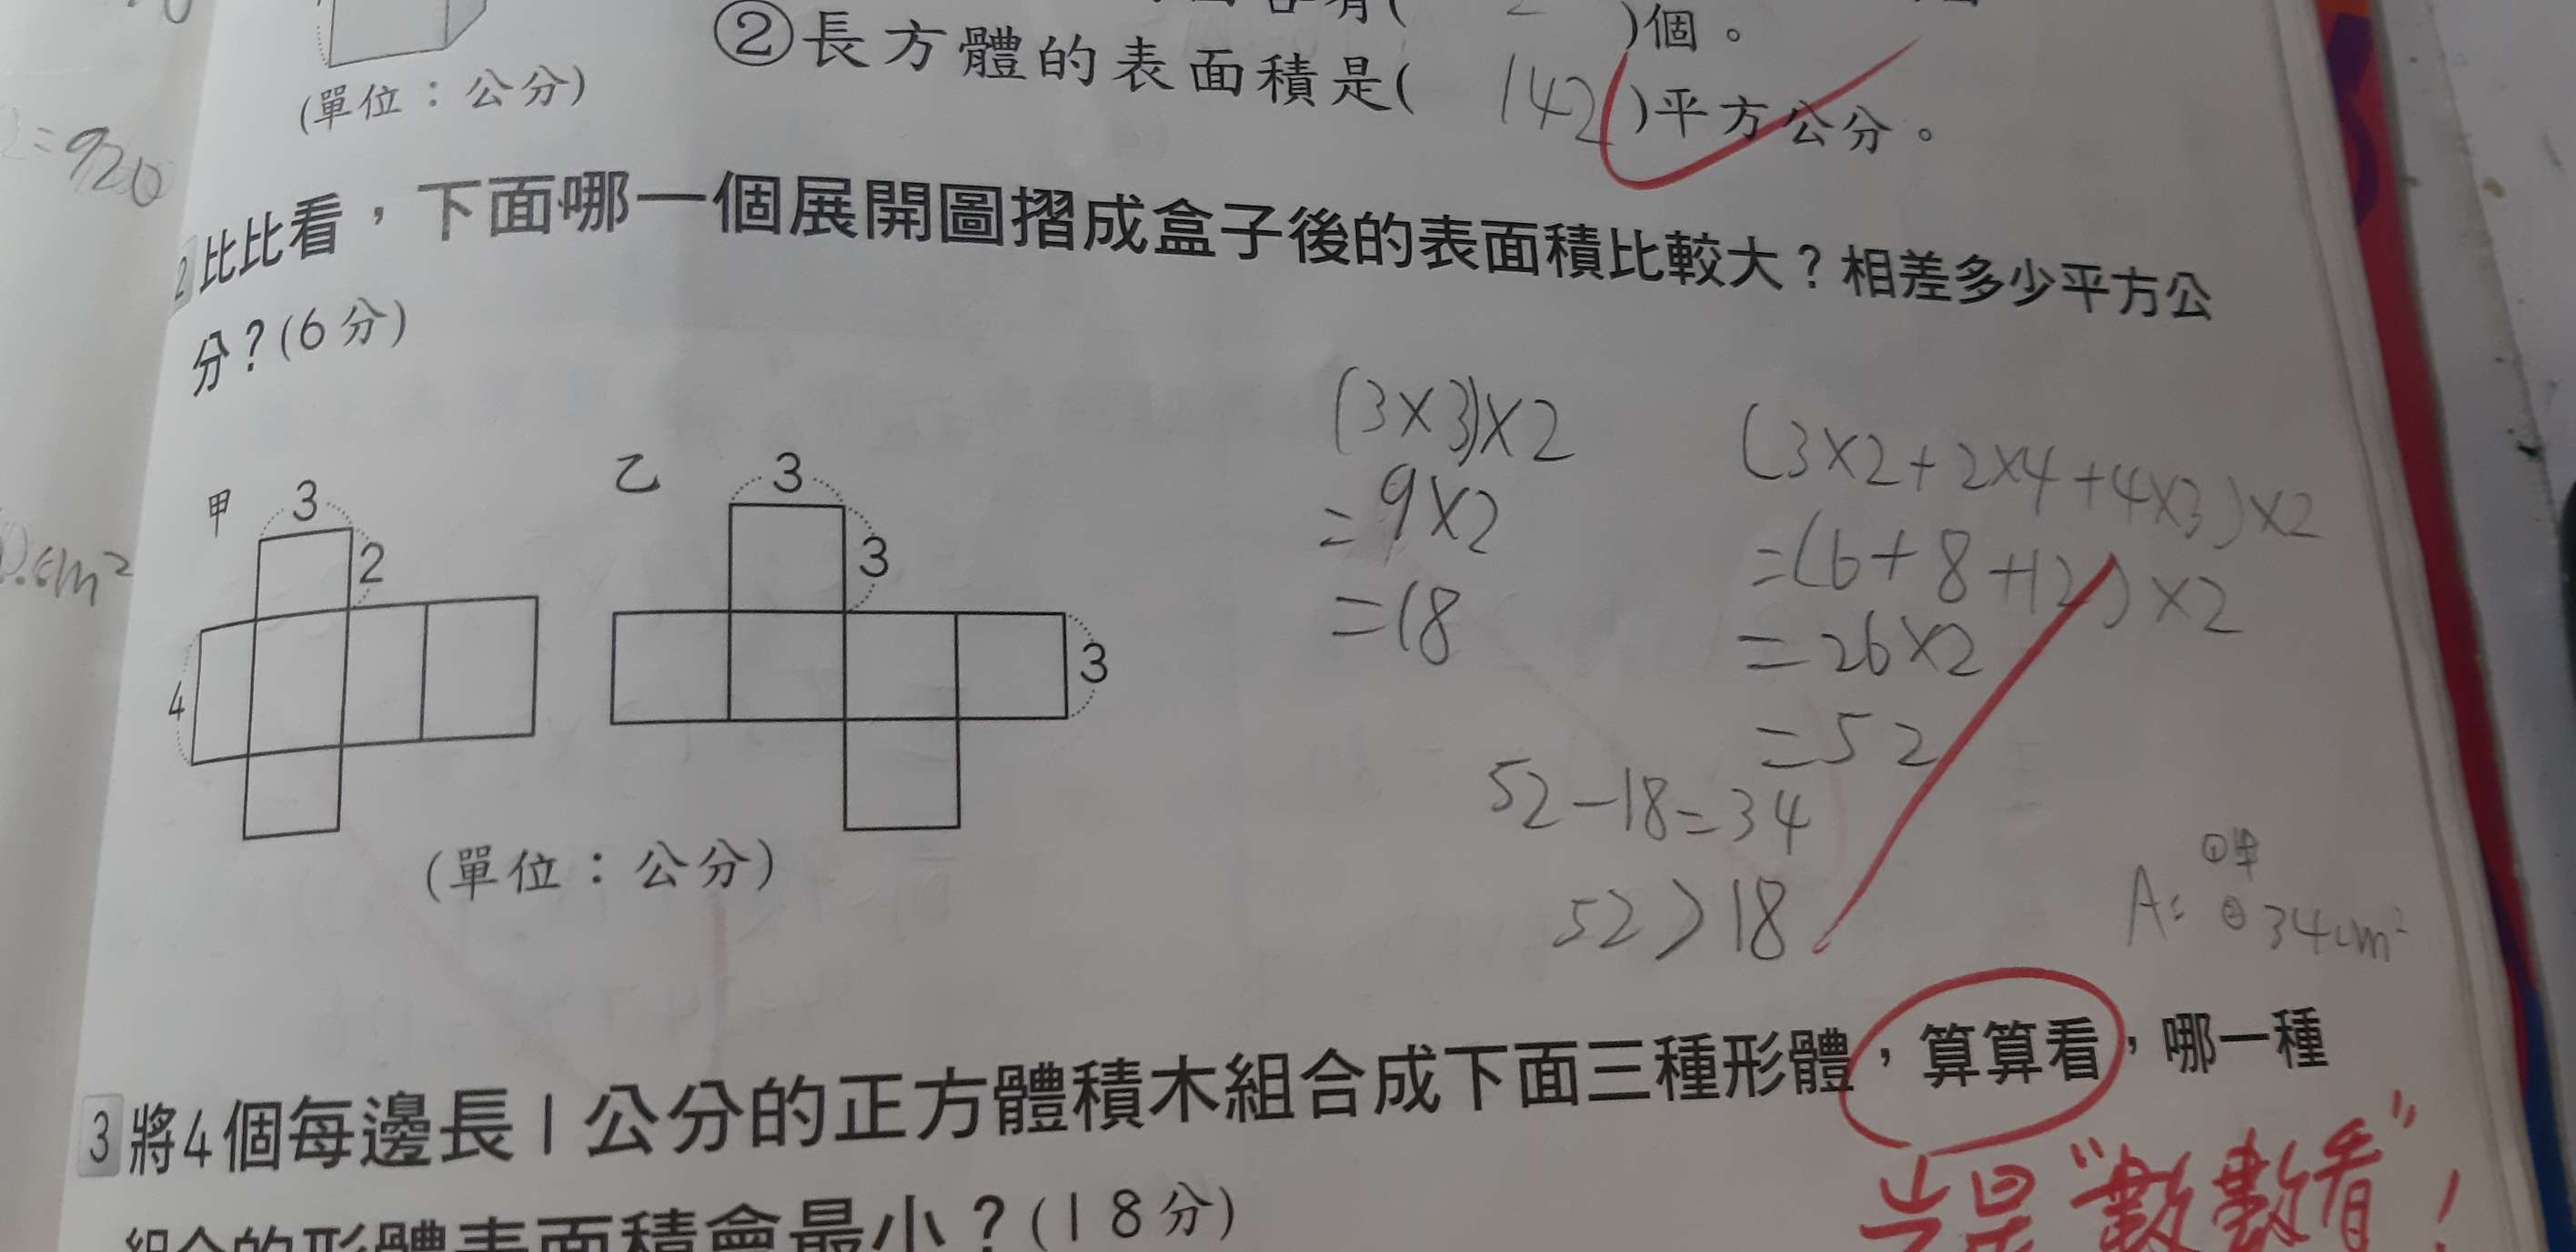 )個。
(單位：公分)
②長方體的表面積是( 142 )平方公分。
=920
cm²
2 比比看，下面哪一個展開圖摺成盒子後的表面積比較大？相差多少平方公
分？(6分)
甲 3
2
4
乙 3
3
3
(單位：公分)
(3×3)×2
=9×2
=18
(3×2+2×4+4×3)×2
=(6+8+12)×2
=26×2
=52
52-18=34
52>18
A: ①甲
②34cm²
3 將4個每邊長1公分的正方體積木組合成下面三種形體，算算看，哪一種
組合的形體表面積會最小？(18分)
"數數看"!